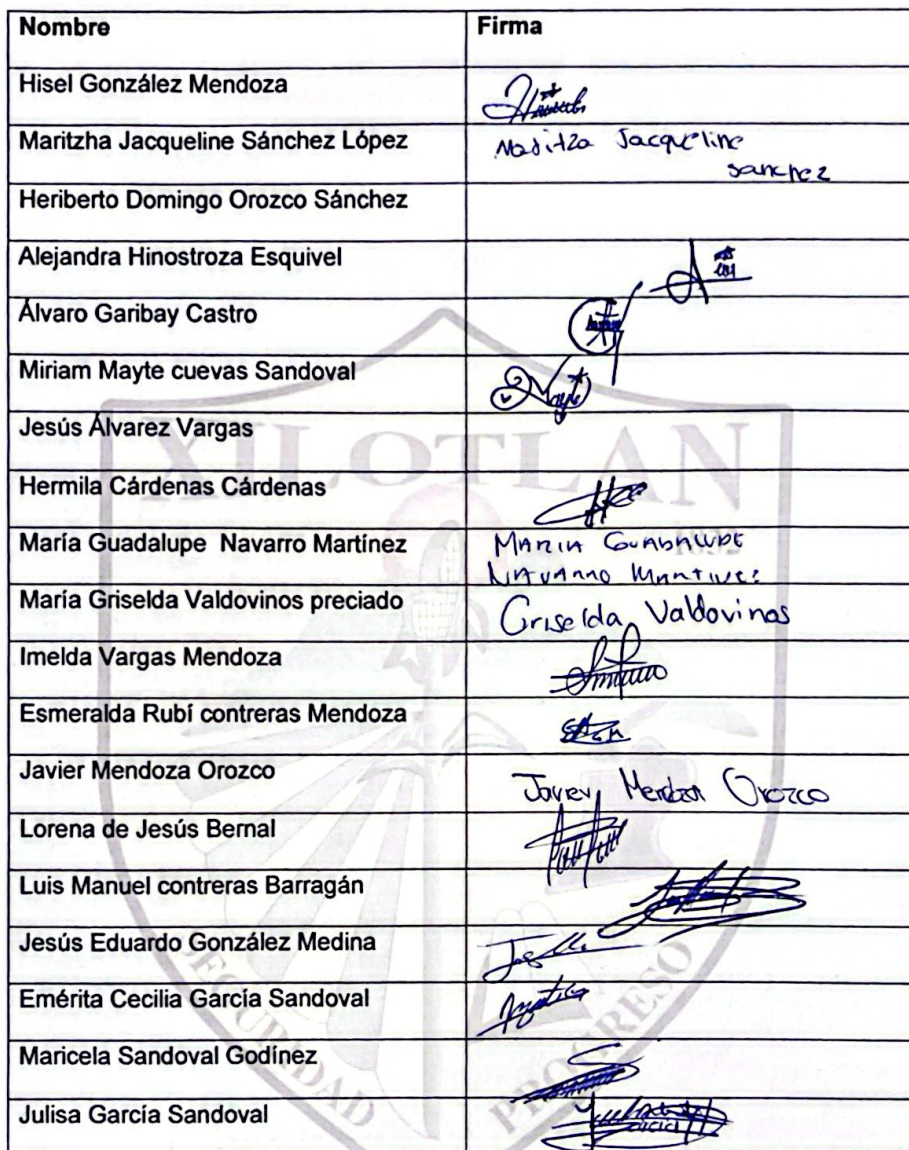 Nombre Firma
Hisel González Mendoza
Maritzha Jacqueline Sánchez López Maritza Jacqueline
sanchez
Heriberto Domingo Orozco Sánchez
Alejandra Hinostroza Esquivel
Álvaro Garibay Castro
Miriam Mayte cuevas Sandoval Mayte
Jesús Álvarez Vargas
XILOTLAN
Hermila Cárdenas Cárdenas
María Guadalupe Navarro Martínez MARIA GUADALUPE
1832
NAVARRO MARTINEZ
María Griselda Valdovinos preciado Griselda Valdovinos
Imelda Vargas Mendoza
Esmeralda Rubí contreras Mendoza
Javier Mendoza Orozco Javier Mendoza Orozco
Lorena de Jesús Bernal
Luis Manuel contreras Barragán
Jesús Eduardo González Medina
Emérita Cecilia García Sandoval
Maricela Sandoval Godínez
Julisa García Sandoval
SEGURIDAD PROGRESO